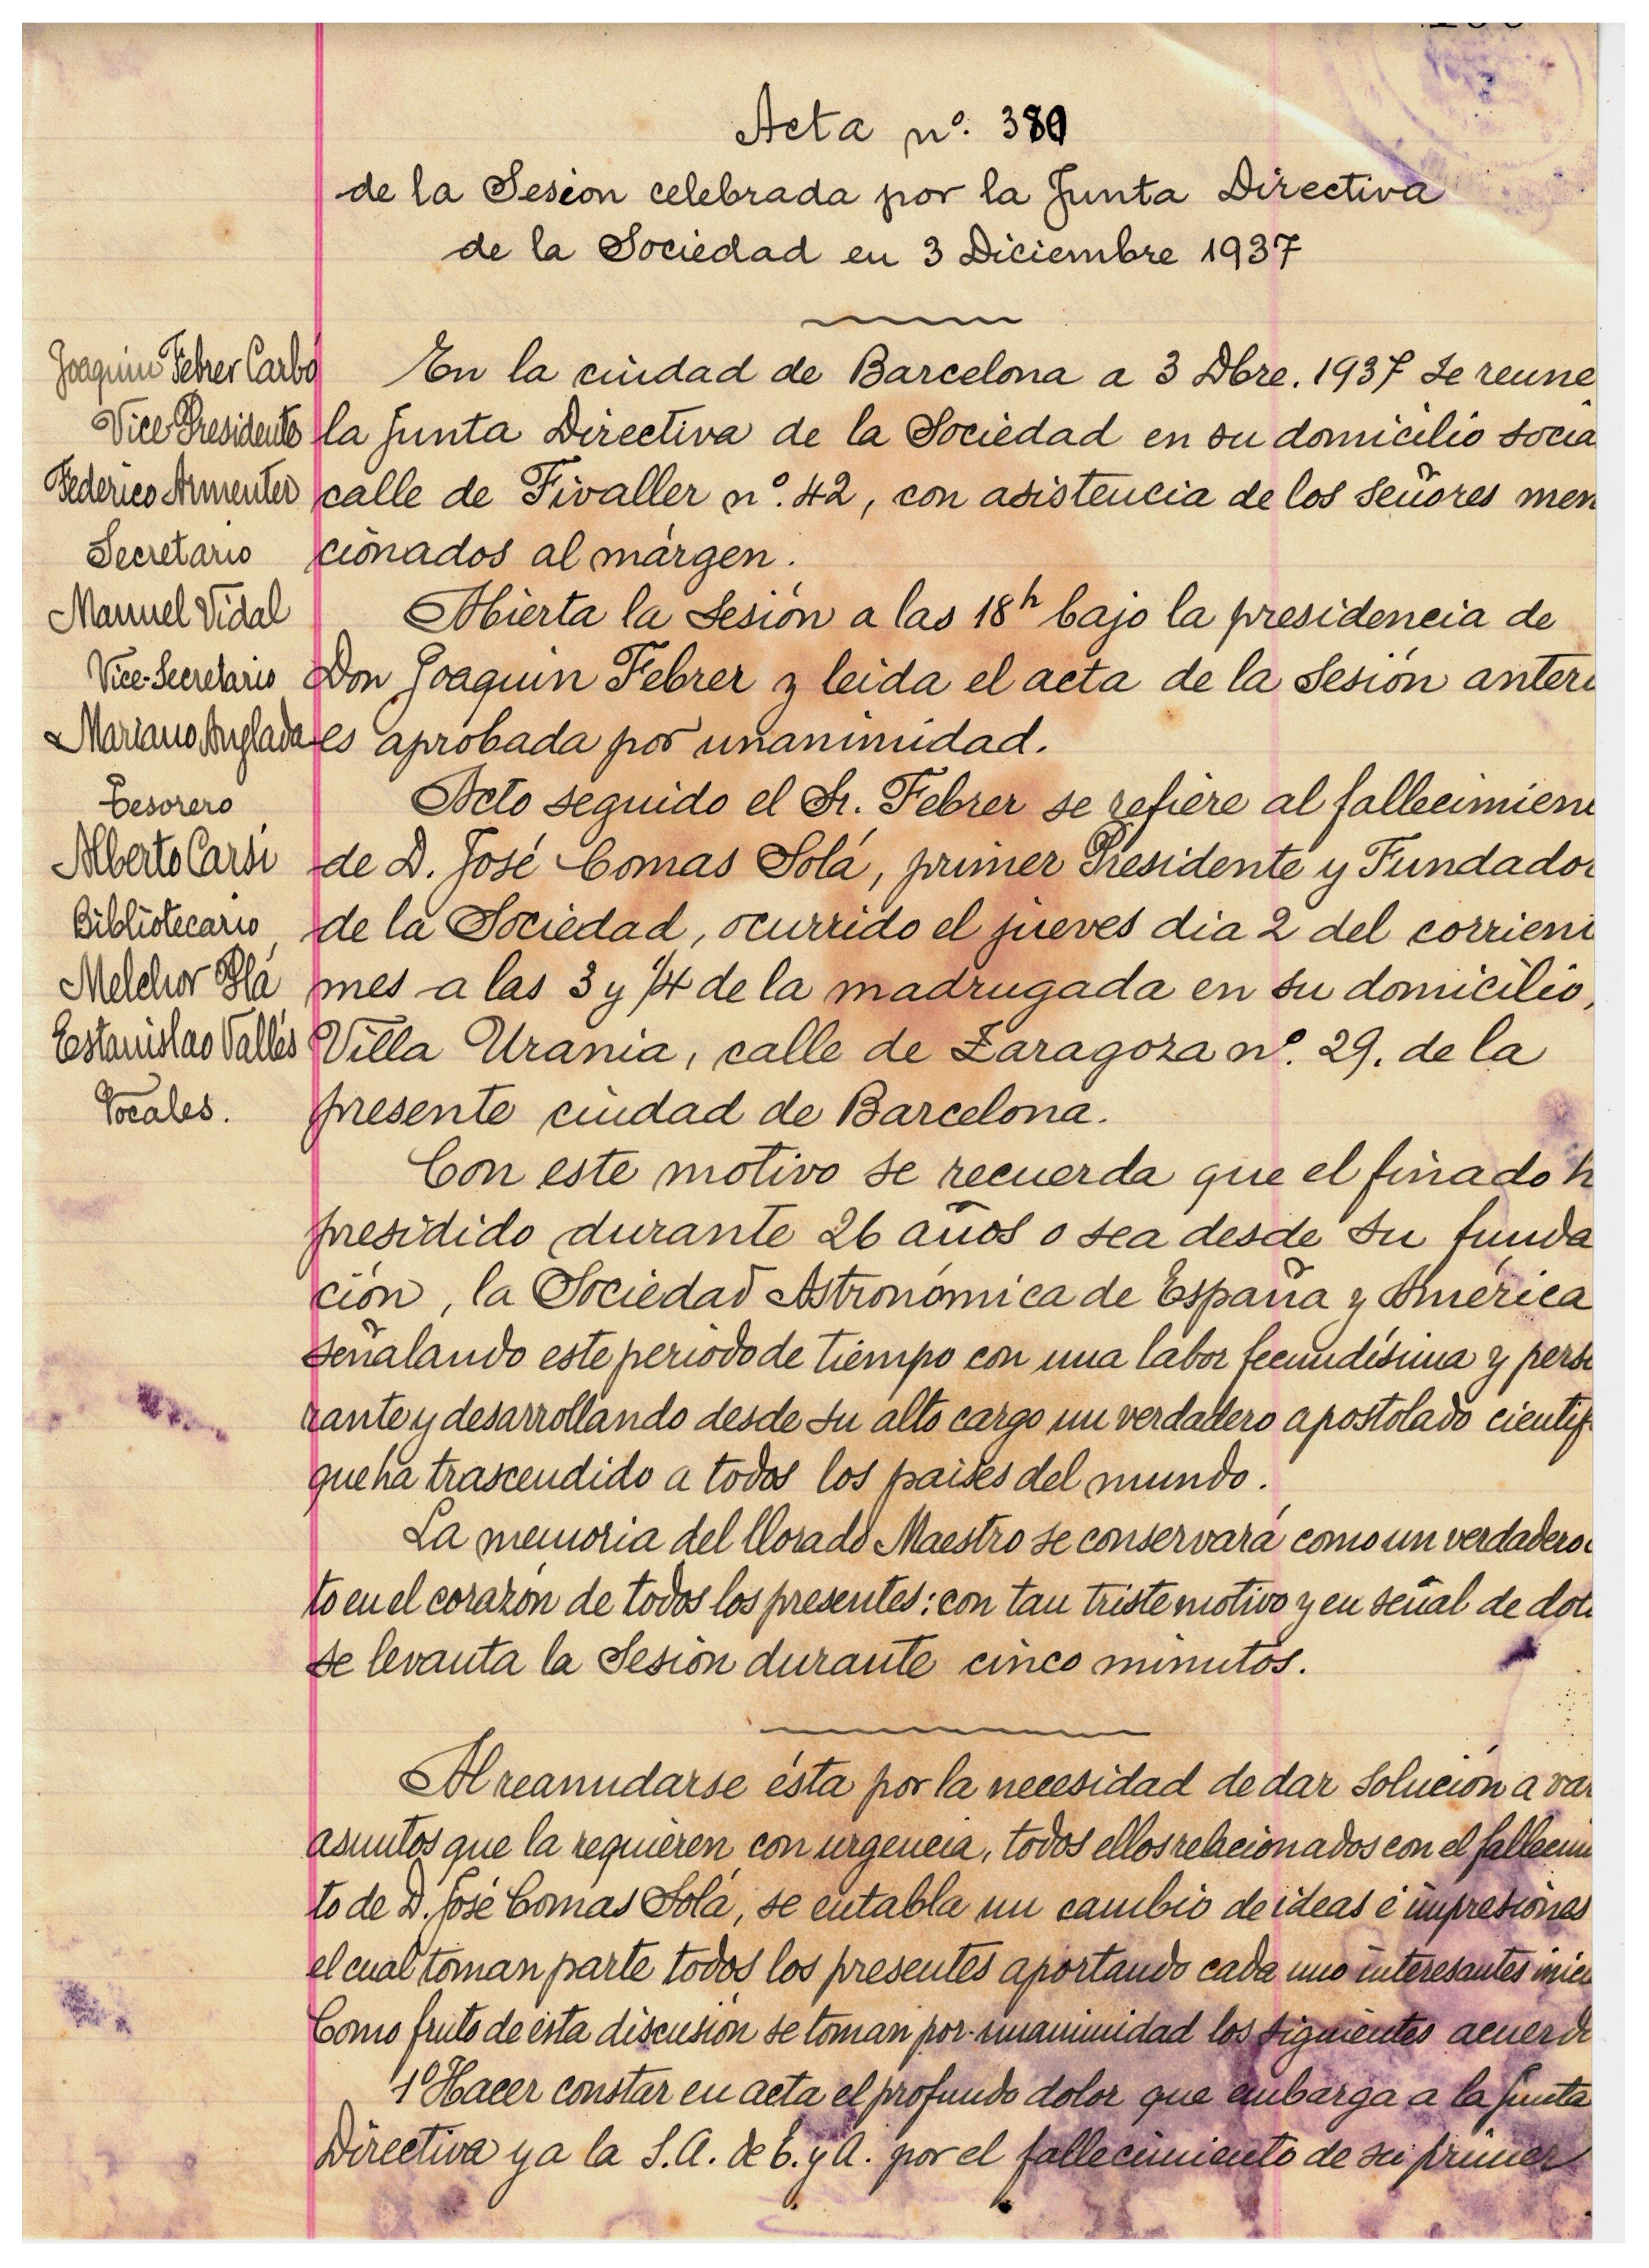 Acta nº. 380
de la Sesión celebrada por la Junta Directiva
de la Sociedad en 3 Diciembre 1937
Joaquin Febrer Carbó
Vice Presidente
Federico Armenter
Secretario
Manuel Vidal
Vice-Secretario
Mariano Anglada
Tesorero
Alberto Carsi
Bibliotecario
Melchor Plá
Estanislao Vallés
Vocales.
En la ciudad de Barcelona a 3 Dbre. 1937 se reune
la Junta Directiva de la Sociedad en su domicilio socia
calle de Fivaller nº. 42, con asistencia de los señores men
cionados al márgen.
Abierta la Sesión a las 18h bajo la presidencia de
Don Joaquin Febrer y leida el acta de la Sesión anteri
es aprobada por unanimidad.
Acto seguido el Sr. Febrer se refiere al fallecimien
de D. José Comas Solá, primer Presidente y Fundador
de la Sociedad, ocurrido el jueves dia 2 del corrient
mes a las 3 y 1/4 de la madrugada en su domicilio,
Villa Urania, calle de Zaragoza nº. 29. de la
presente ciudad de Barcelona.
Con este motivo se recuerda que el finado h
presidido durante 26 años o sea desde su funda
ción, la Sociedad Astronómica de España y América
señalando este periodo de tiempo con una labor fecundísima y perse
rante y desarrollando desde su alto cargo un verdadero apostolado cientif
que ha trascendido a todos los paises del mundo.
La memoria del llorado Maestro se conservará como un verdadero
to en el corazón de todos los presentes: con tan triste motivo y en señal de dol
se levanta la Sesión durante cinco minutos.
Al reanudarse ésta por la necesidad de dar solución a var
asuntos que la requieren con urgencia, todos ellos relacionados con el fallecim
to de D. José Comas Solá, se entabla un cambio de ideas é impresiones
el cual toman parte todos los presentes aportando cada uno interesantes inici
Como fruto de esta discusión se toman por unanimidad los siguientes acuerd
1º Hacer constar en acta el profundo dolor que embarga a la Junta
Directiva y a la S.A. de E. y A. por el fallecimiento de su primer